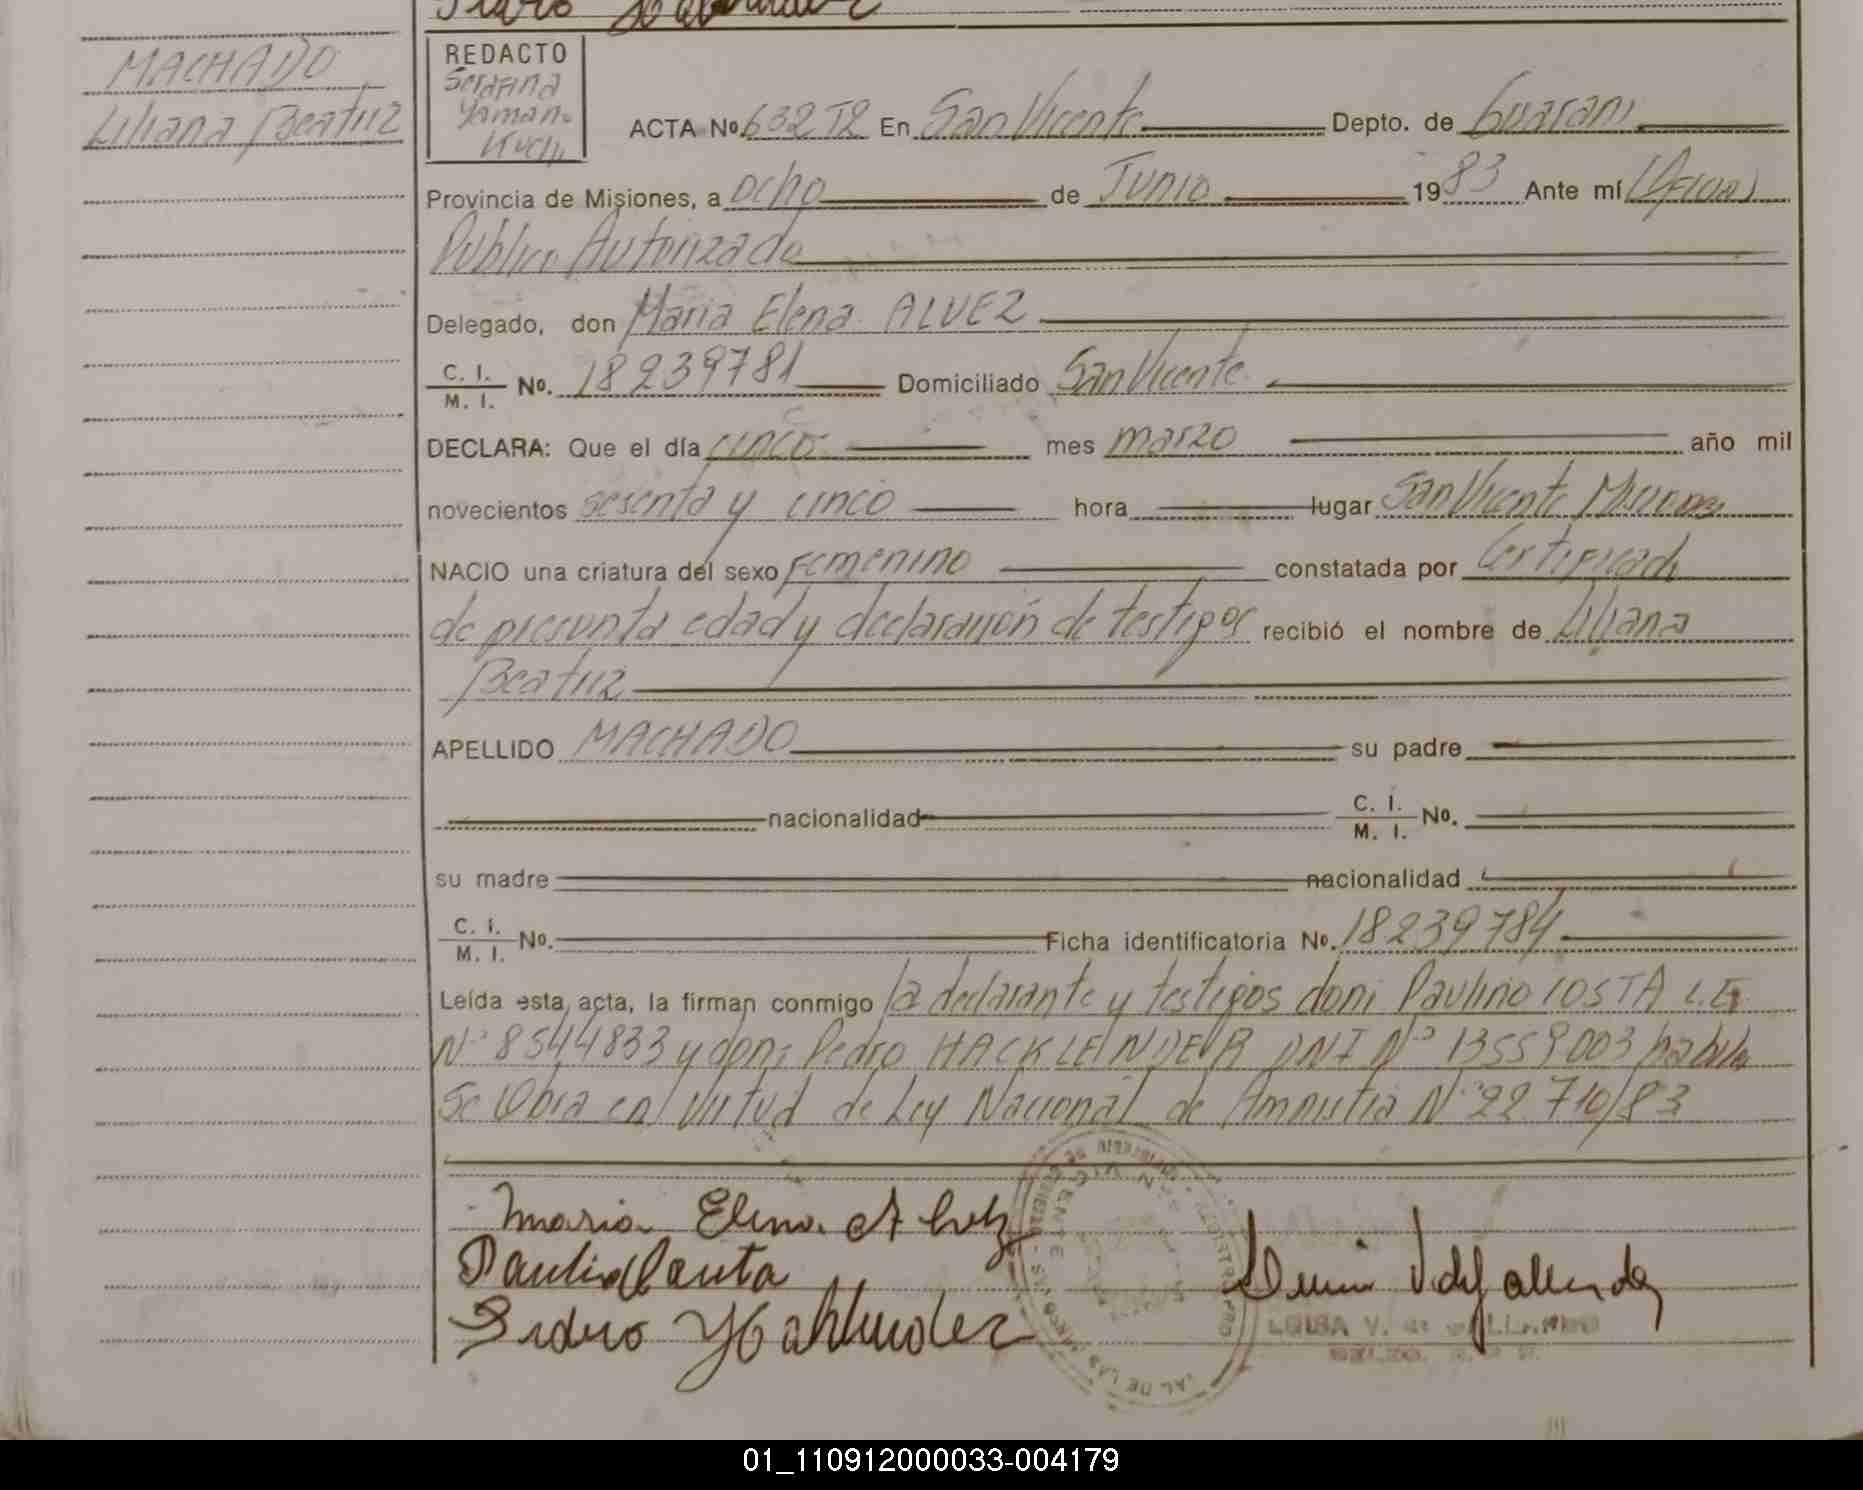 MACHADO
Liliana Beatriz
REDACTO
Serafina
Yaman
ACTA No. 632 T2 En San Vicente Depto. de Guarani
Provincia de Misiones, a ocho de Junio 1983 Ante mí (Oficial)
Publico Autorizado
Delegado, don Maria Elena ALVEZ
C. I. / M. I. No. 18239781 Domiciliado San Vicente
DECLARA: Que el día cinco mes marzo año mil
novecientos sesenta y cinco hora lugar San Vicente Misiones
NACIO una criatura del sexo Femenino constatada por Certificado
de presunta edad y declaración de testigos recibió el nombre de Liliana
Beatriz
APELLIDO MACHADO su padre
nacionalidad C. I. / M. I. No.
su madre nacionalidad
C. I. / M. I. No. Ficha identificatoria No. 18239784
Leída esta acta, la firman conmigo la declarante y testigos don: Paulino COSTA L.E.
Nº 8544833 y don: Pedro HACKLENDER DNI Nº 13559003 habila
Se Obra en Virtud de Ley Nacional de Amnistia Nº 22.710/83
Maria Elena Alvez
LUISA V. de
01_110912000033-004179